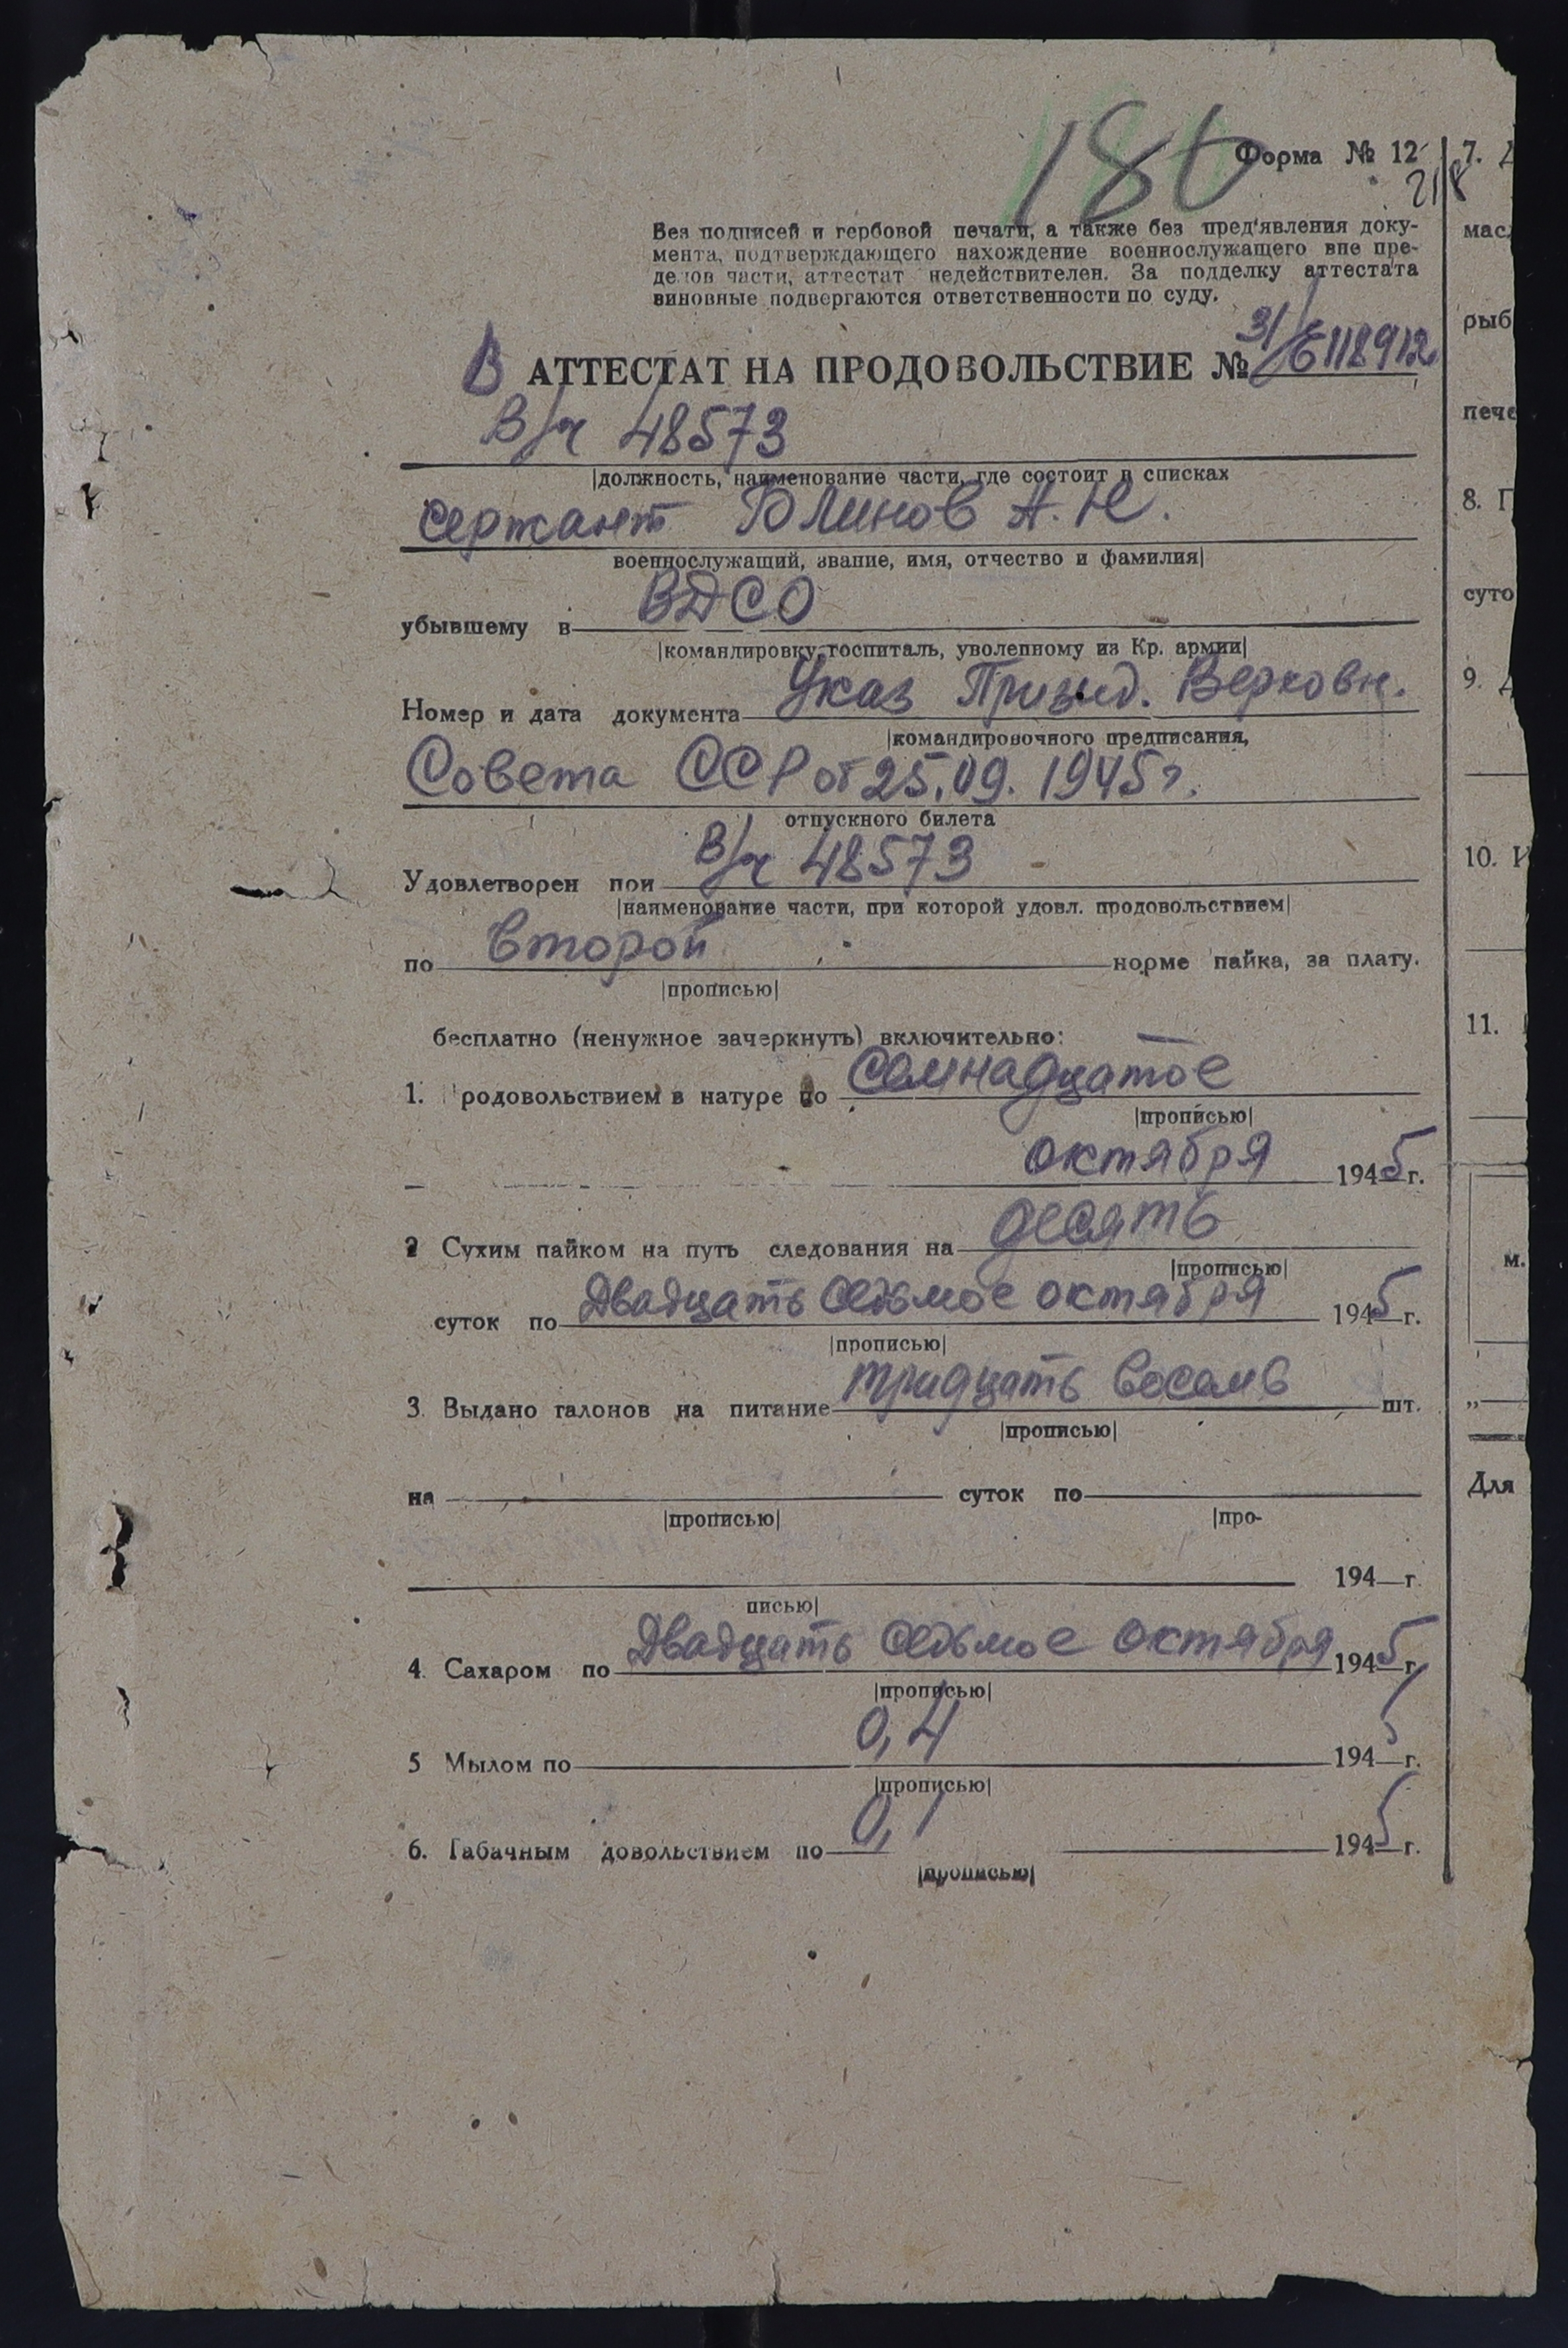 180
Форма № 12
218
Без подписей и гербовой печати, а также без пред'явления доку-
мента, подтверждающего нахождение военнослужащего вне пре-
делов части, аттестат недействителен. За подделку аттестата
виновные подвергаются ответственности по суду.
В АТТЕСТАТ НА ПРОДОВОЛЬСТВИЕ № 31/Б118912
В/ч 48573
|должность, наименование части, где состоит в списках
сержант Блинов А. Н.
военнослужащий, звание, имя, отчество и фамилия|
убывшему в ВДСО
|командировку, госпиталь, уволенному из Кр. армии|
Номер и дата документа Указ Призид. Верховн.
|командировочного предписания,
Совета ССР от 25.09. 1945 г.
отпускного билета
Удовлетворен при В/ч 48573
|наименование части, при которой удовл. продовольствием|
по второй норме пайка, за плату.
|прописью|
бесплатно (ненужное зачеркнуть) включительно:
1. родовольствием в натуре по семнадцатое
|прописью|
октября 1945 г.
2 Сухим пайком на путь следования на десять
|прописью|
суток по Двадцать седьмое октября 1945 г.
|прописью|
3. Выдано талонов на питание тридцать восемь шт.
|прописью|
на суток по
|прописью| |про-
194 г.
писью|
4. Сахаром по Двадцать седьмое октября 1945 г.
|прописью|
5 Мылом по 0,4 1945 г.
|прописью|
6. Табачным довольствием по 0,1 1945 г.
|прописью|
7. Д
мас
рыб
пече
8. Г
суто
9. Д
10. И
11.
м.
„
Для